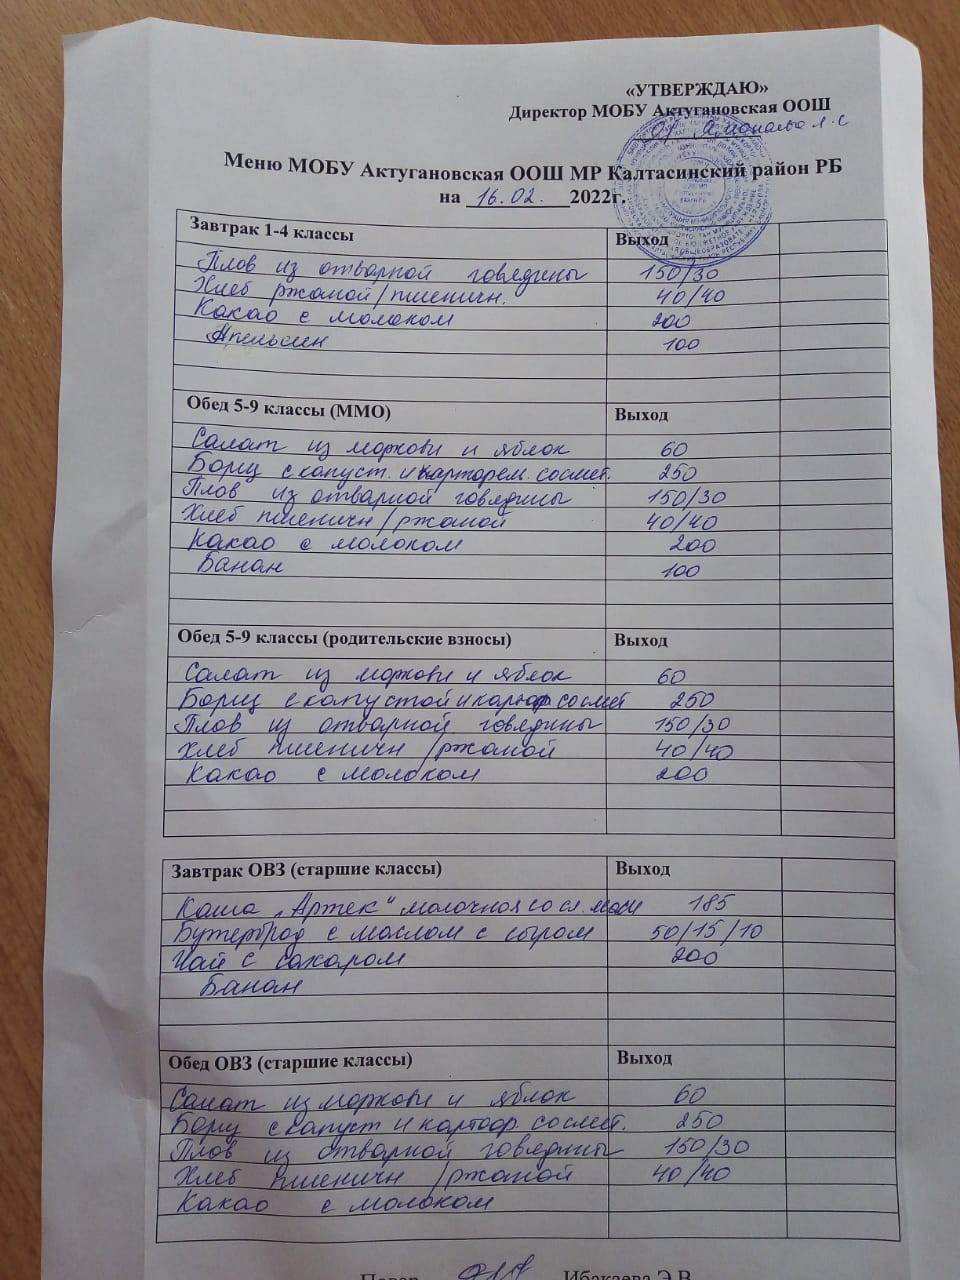 «УТВЕРЖДАЮ»
Директор МОБУ Актугановская ООШ
Меню МОБУ Актугановская ООШ МР Калтасинский район РБ
на 16.02. 2022г.
Завтрак 1-4 классы Выход
Плов из отварной говядины 150/30
Хлеб ржаной/пшеничн. 40/40
Какао с молоком 200
Апельсин 100
Обед 5-9 классы (ММО) Выход
Салат из моркови и яблок 60
Борщ с капуст. и картофем. со смет. 250
Плов из отварной говядины 150/30
Хлеб пшеничн/ржаной 40/40
Какао с молоком 200
Банан 100
Обед 5-9 классы (родительские взносы) Выход
Салат из моркови и яблок 60
Борщ с капустой и картоф со смет 250
Плов из отварной говядины 150/30
Хлеб пшеничн /ржаной 40/40
Какао с молоком 200
Завтрак ОВЗ (старшие классы) Выход
Каша „Артек“ молочная со сл. масл 185
Бутерброд с маслом с сыром 50/15/10
Чай с сахаром 200
Банан
Обед ОВЗ (старшие классы) Выход
Салат из моркови и яблок 60
Борщ с капуст и картоф. со смет. 250
Плов из отварной говядины 150/30
Хлеб пшеничн /ржаной 40/40
Какао с молоком
Повар Ибакаева Э.В.